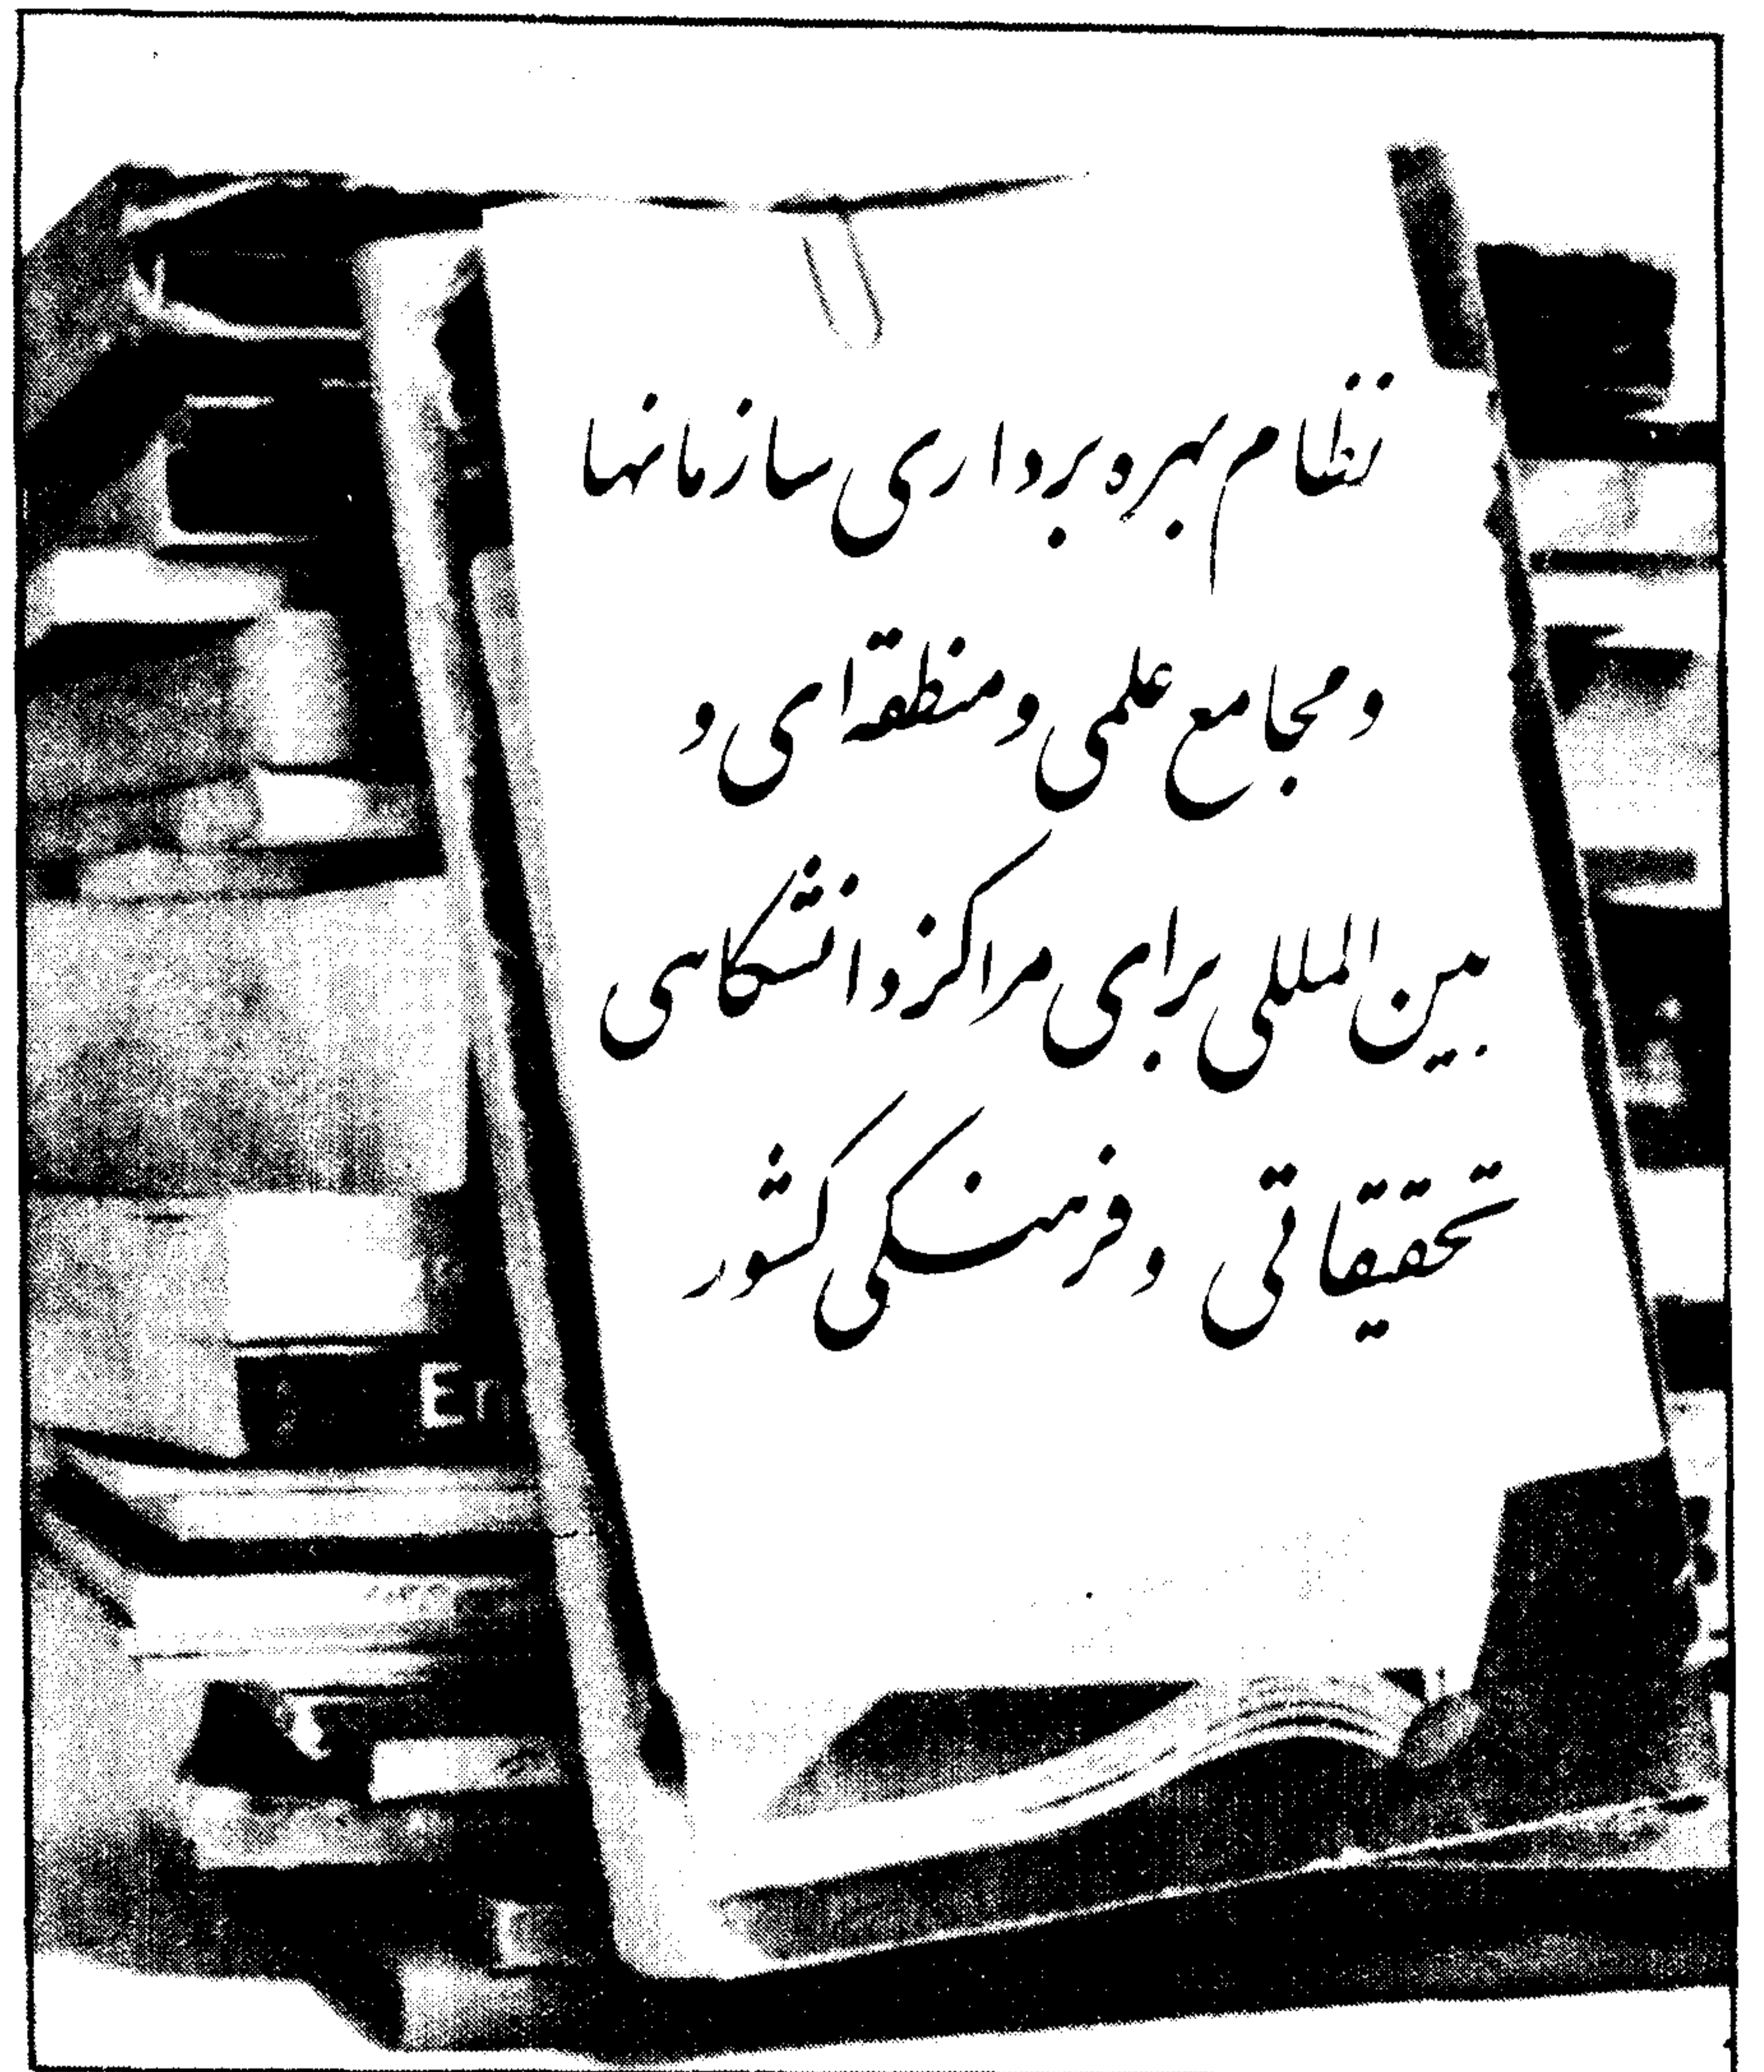 نظام بهره برداری سازمانها
و مجامع علمی و منطقه ای و
بین المللی برای مراکز دانشگاهی
تحقیقاتی و فرهنگی کشور
En